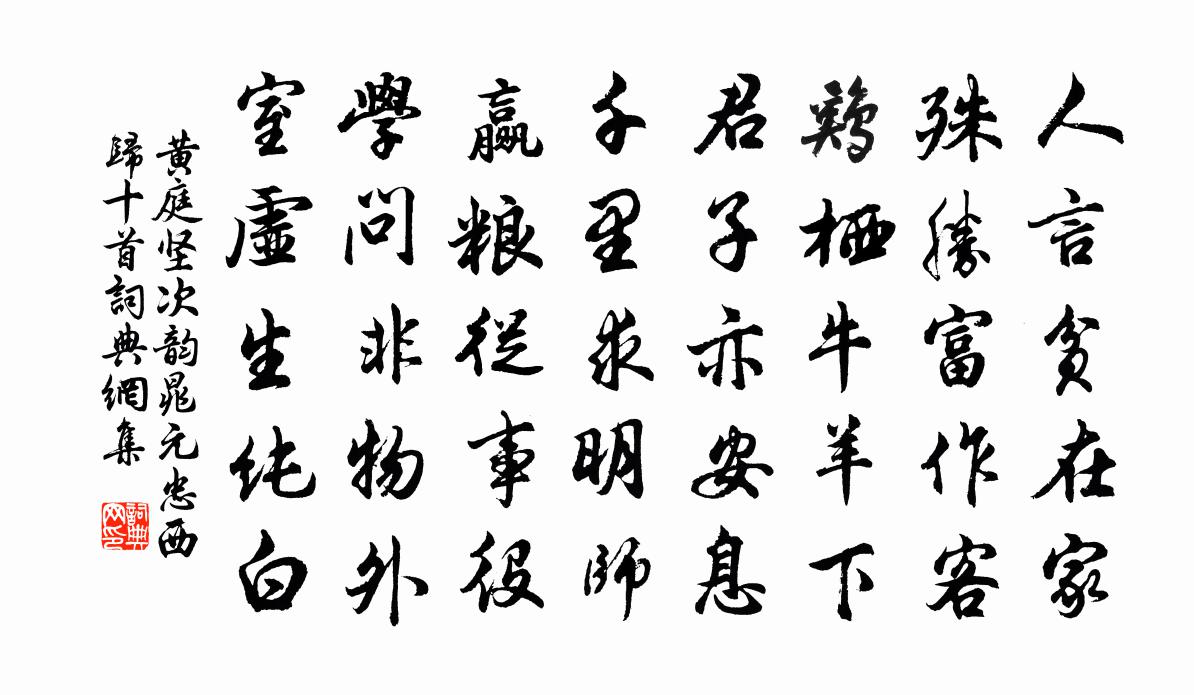 人言貧在家
殊勝富作客
鷄栖牛羊下
君子亦安息
千里求明師
贏粮從事役
學問非物外
室虛生純白
黄庭坚次韵晁元忠西
歸十首詞典網集
詞典网印